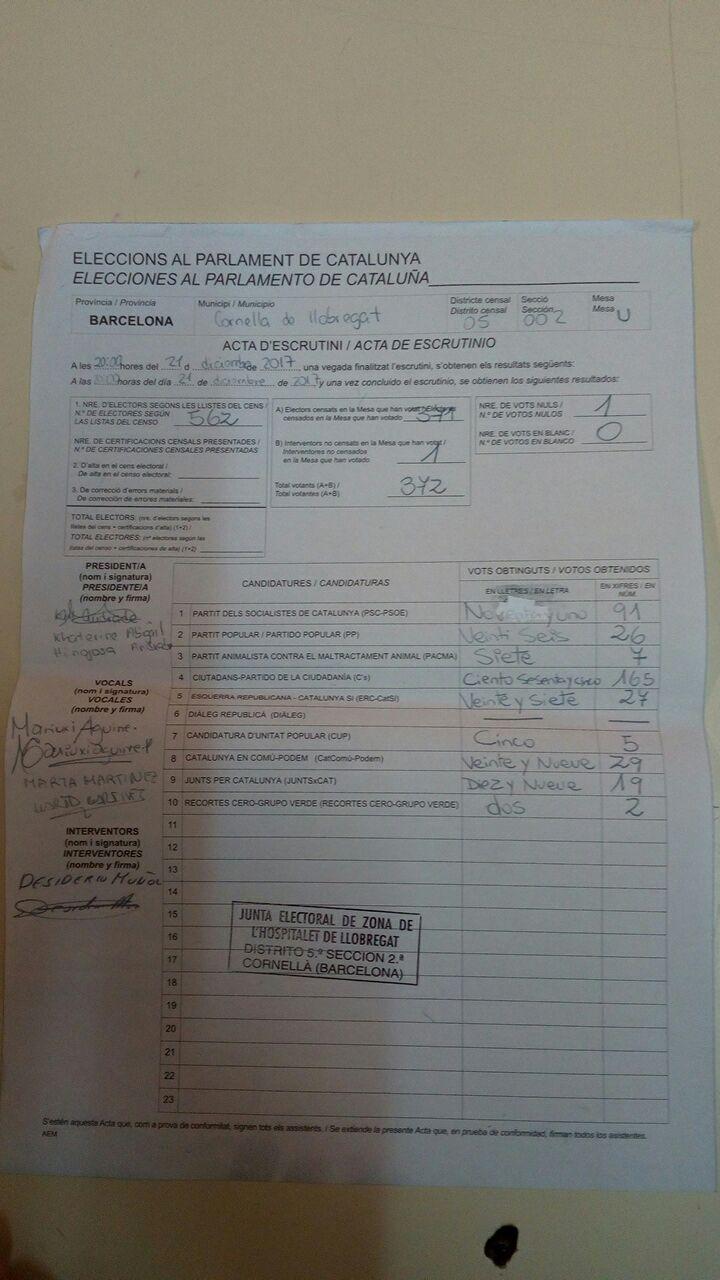 ELECCIONS AL PARLAMENT DE CATALUNYA
ELECCIONES AL PARLAMENTO DE CATALUÑA
Província / Provincia
BARCELONA
Municipi / Municipio
Cornella de llobregat
Districte censal
Distrito censal
05
Secció
Sección
002
Mesa
Mesa
U
ACTA D'ESCRUTINI / ACTA DE ESCRUTINIO
A les 20:00 hores del 21 d diciembre 2017, una vegada finalitzat l'escrutini, s'obtenen els resultats següents:
A las 20:00 horas del día 21 de diciembre de 2017 y una vez concluido el escrutinio, se obtienen los siguientes resultados:
1. NRE. D'ELECTORS SEGONS LES LLISTES DEL CENS /
N.º DE ELECTORES SEGÚN
LAS LISTAS DEL CENSO 562
NRE. DE CERTIFICACIONS CENSALS PRESENTADES /
N.º DE CERTIFICACIONES CENSALES PRESENTADAS
2. D'alta en el cens electoral /
De alta en el censo electoral:
3. De correcció d'errors materials /
De corrección de errores materiales:
TOTAL ELECTORS: (nre. d'electors segons les
llistes del cens + certificacions d'alta) (1+2) /
TOTAL ELECTORES: (nº electores según las
listas del censo + certificaciones de alta) (1+2)
A) Electors censats en la Mesa que han votat / Electores
censados en la Mesa que han votado 371
B) Interventors no censats en la Mesa que han votat /
Interventores no censados
en la Mesa que han votado 1
Total votants (A+B) /
Total votantes (A+B) 372
NRE. DE VOTS NULS /
N.º DE VOTOS NULOS 1
NRE. DE VOTS EN BLANC /
N.º DE VOTOS EN BLANCO 0
PRESIDENT/A
(nom i signatura)
PRESIDENTE/A
(nombre y firma)
Khaterine Abigail
Hinojosa Andrade
VOCALS
(nom i signatura)
VOCALES
(nombre y firma)
Mariuxi Aguirre.
MARTA MARTINEZ
INTERVENTORS
(nom i signatura)
INTERVENTORES
(nombre y firma)
DESIDERIO MUÑOZ
CANDIDATURES / CANDIDATURAS
VOTS OBTINGUTS / VOTOS OBTENIDOS
EN LLETRES / EN LETRA
EN XIFRES / EN NÚM.
1 PARTIT DELS SOCIALISTES DE CATALUNYA (PSC-PSOE) Noventa y uno 91
2 PARTIT POPULAR / PARTIDO POPULAR (PP) Veinti Seis 26
3 PARTIT ANIMALISTA CONTRA EL MALTRACTAMENT ANIMAL (PACMA) Siete 7
4 CIUTADANS-PARTIDO DE LA CIUDADANÍA (C's) Ciento Sesenta y cinco 165
5 ESQUERRA REPUBLICANA - CATALUNYA SÍ (ERC-CatSí) Veinte y Siete 27
6 DIÀLEG REPUBLICÀ (DIÀLEG)
7 CANDIDATURA D'UNITAT POPULAR (CUP) Cinco 5
8 CATALUNYA EN COMÚ-PODEM (CatComú-Podem) Veinte y Nueve 29
9 JUNTS PER CATALUNYA (JUNTSxCAT) Diez y Nueve 19
10 RECORTES CERO-GRUPO VERDE (RECORTES CERO-GRUPO VERDE) dos 2
11
12
13
14
15
16
17
18
19
20
21
22
23
JUNTA ELECTORAL DE ZONA DE
L'HOSPITALET DE LLOBREGAT
DISTRITO 5.º SECCION 2.ª
CORNELLÀ (BARCELONA)
S'estén aquesta Acta que, com a prova de conformitat, signen tots els assistents. / Se extiende la presente Acta que, en prueba de conformidad, firman todos los asistentes.
AEM